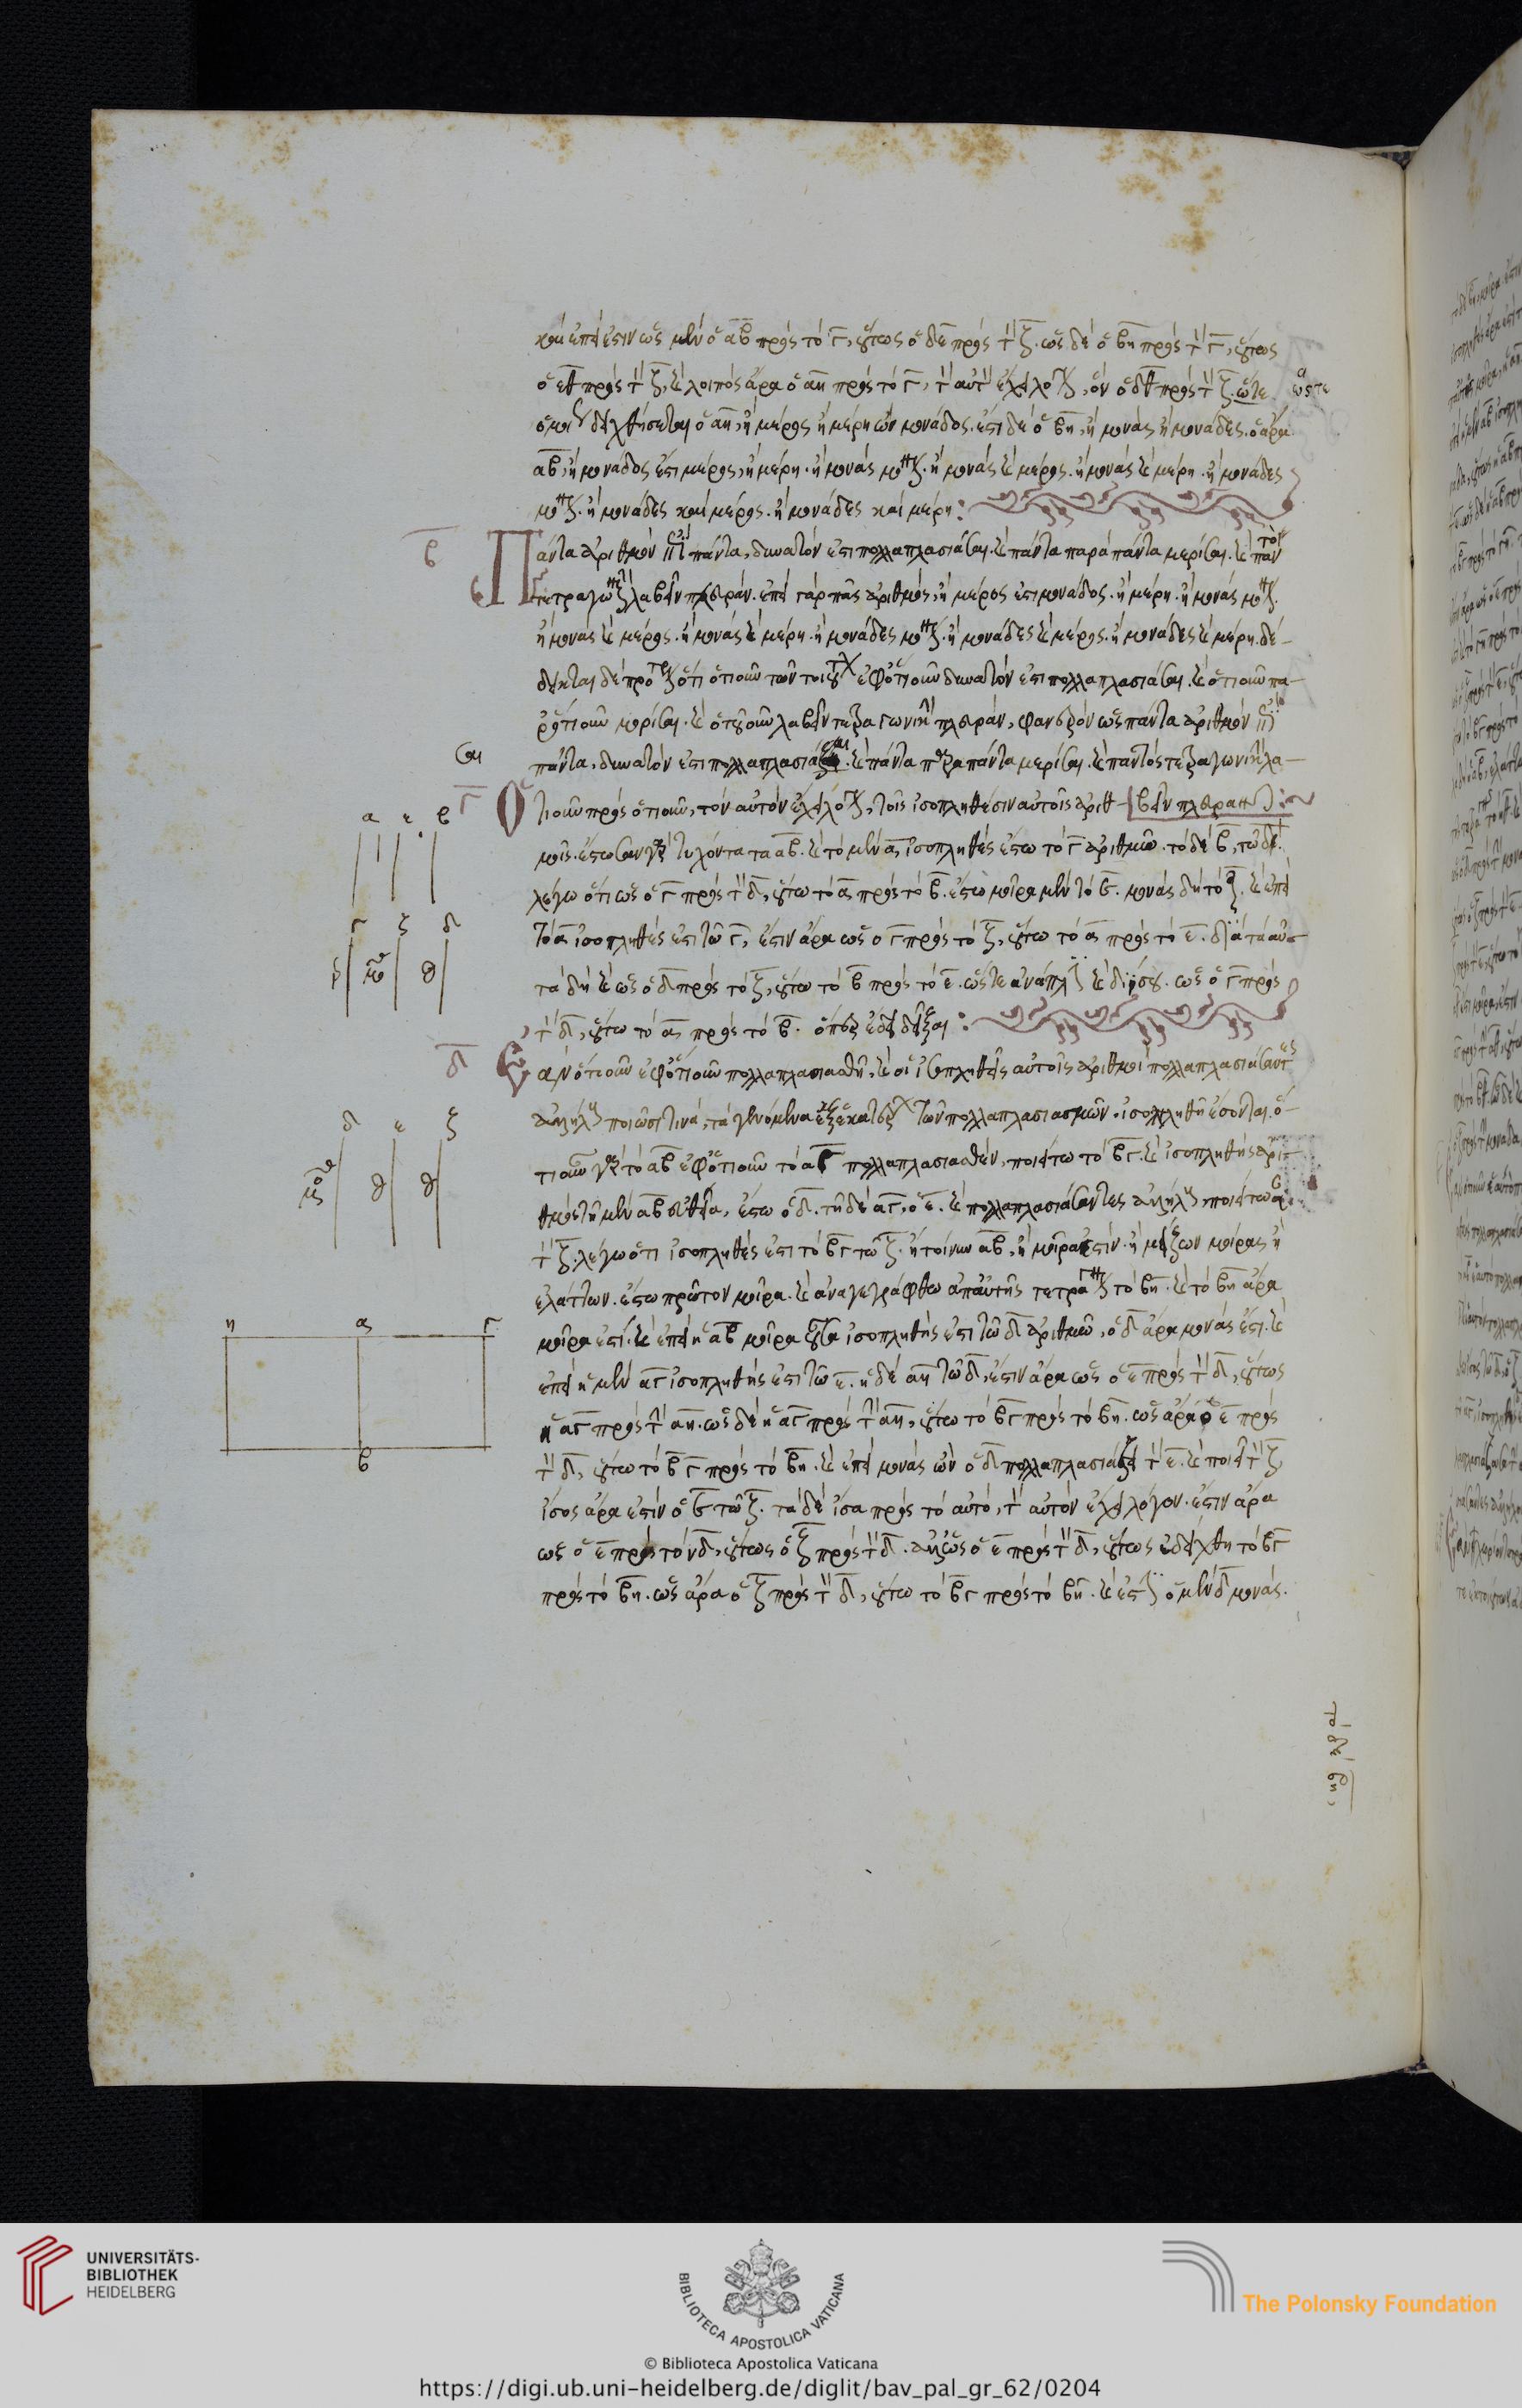 καὶ ἐπεί ἐστιν ὡς μὲν ὁ αβ πρὸς τὸ γ, οὕτως ὁ δε πρὸς τ ζ. ὡς δὲ ὁ βη πρὸς τ γ, οὕτως
ὁ εθ πρὸς τ ζ, καὶ λοιπὸς ἄρα ὁ αη πρὸς τὸ γ, τ αὐτ ἔχει λό, ὃν ὁ δθ πρὸς τ ζ. ὥστε
δειχθήσεται ὁ αη, ἢ μέρος ἢ μέρη ὢν μονάδος. ἐστὶ δὲ ὁ βη, ἢ μονὰς ἢ μονάδες. ὁ ἄρα
αβ, ἢ μονάδος ἐστὶ μέρος, ἢ μέρη. ἢ μονὰς μο. ἢ μονὰς καὶ μέρος. ἢ μονὰς καὶ μέρη. ἢ μονάδες
μο. ἢ μονάδες καὶ μέρος. ἢ μονάδες καὶ μέρη:
β
Πάντα ἀριθμὸν ἐπὶ πάντα, δυνατόν ἐστι πολλαπλασιάσαι. καὶ πάντα παρὰ πάντα μερίσαι. καὶ παντὸς
τετραγω λαβεῖν πλευράν. ἐπεὶ γὰρ πᾶς ἀριθμός, ἢ μέρος ἐστὶ μονάδος. ἢ μέρη. ἢ μονὰς μο.
ἢ μονὰς καὶ μέρος. ἢ μονὰς καὶ μέρη. ἢ μονάδες μο. ἢ μονάδες καὶ μέρος. ἢ μονάδες καὶ μέρη. δέ-
δεικται δὲ πρό ὅτι ὁτιοῦν τῶν τοιού ἐφ' ὁτιοῦν δυνατόν ἐστι πολλαπλασιάσαι. καὶ ὁτιοῦν πα-
ρ' ὁτιοῦν μερίσαι. καὶ ὁτουοῦν λαβεῖν τετραγωνικὴν πλευράν, φανερὸν ὡς πάντα ἀριθμὸν ἐπὶ
σαι
πάντα, δυνατόν ἐστι πολλαπλασιά. καὶ πάντα παρὰ πάντα μερίσαι. καὶ παντὸς τετραγωνικὴ λα-
βεῖν πλευρὰν:
γ
Ὁτιοῦν πρὸς ὁτιοῦν, τὸν αὐτὸν ἔχει λό, τοῖς ἰσοπληθέσιν αὐτοῖς ἀριθ-
μοῖς. ἔστωσαν γὰρ τυχόντα τα αβ. καὶ τὸ μὲν α ἰσοπληθὲς ἔστω τὸ γ ἀριθμῶ. τὸ δὲ β, τῶ δ.
λέγω ὅτι ὡς ὁ γ πρὸς τ δ, οὕτω τὸ α πρὸς τὸ β. ἔστω μοῖρα μὲν τὸ ε. μονὰς δὴ τὸ ζ. καὶ ἐπεὶ
τὸ α ἰσοπληθές ἐστι τῶ γ, ἔστιν ἄρα ὡς ὁ γ πρὸς τὸ ζ, οὕτω τὸ α πρὸς τὸ ε. διὰ τὰ αὐ-
τὰ δὴ καὶ ὡς ὁ δ πρὸς τὸ ζ, οὕτω τὸ β πρὸς τὸ ε. ὥστε ἀνάπλι καὶ διΐσου. ὡς ὁ γ πρὸς
τ δ, οὕτω τὸ α πρὸς τὸ β. ὅπερ ἔδει δεῖξαι:
δ
Ἐὰν ὁτιοῦν ἐφ' ὁτιοῦν πολλαπλασιασθῆ, καὶ οἱ ἰσοπληθεῖς αὐτοῖς ἀριθμοὶ πολλαπλασιάσαντες
ἀλλήλ ποιῶσι τινά, τὰ γενόμενα ἐξ ἑκατέρ τῶν πολλαπλασιασμῶν. ἰσοπληθῆ ἔσονται. ὁ-
τιοῦν γὰρ τὸ αβ ἐφ' ὁτιοῦν τὸ αγ πολλαπλασιασθέν, ποιείτω τὸ βγ. καὶ ἰσοπληθὴς ἀρι-
θμὸς τῆ μὲν αβ εὐθεία, ἔστω ὁ δ. τῆ δὲ αγ, ὁ ε. καὶ πολλαπλασιάσαντες ἀλλήλ, ποιείτωσαν
τ ζ. λέγω ὅτι ἰσοπληθές ἐστι τὸ βγ τῶ ζ. ἡ τοίνυν αβ, ἢ μοῖρα ἐστίν. ἢ μείζων μοίρας ἢ
ἐλάττων. ἔστω πρῶτον μοῖρα. καὶ ἀναγεγράφθω ἀπ' αὐτῆς τετρά τὸ βη. καὶ τὸ βη ἄρα
μοῖρα ἐστί. καὶ ἐπεὶ ἡ αβ μοῖρα οὖσα ἰσοπληθής ἐστι τῶ δ ἀριθμῶ, ὁ δ ἄρα μονάς ἐστι. καὶ
ἐπεὶ ἡ μὲν αγ ἰσοπληθής ἐστι τῶ ε. ἡ δὲ αη τῶ δ, ἔστιν ἄρα ὡς ὁ ε πρὸς τ δ, οὕτως
ἡ αγ πρὸς τ αη. ὡς δὲ ἡ αγ πρὸς τ αη, οὕτω τὸ βγ πρὸς τὸ βη. ὡς ἄρα ὁ ε πρὸς
τ δ, οὕτω τὸ βγ πρὸς τὸ βη. καὶ ἐπεὶ μονὰς ὢν ὁ δ πολλαπλασιάζει τ ε. καὶ ποιεῖ τ ζ,
ἴσος ἄρα ἐστὶν ὁ ε τῶ ζ. τὰ δὲ ἴσα πρὸς τὸ αὐτό, τ αὐτὸν ἔχει λόγον. ἔστιν ἄρα
ὡς ὁ ε πρὸς τὸν δ, οὕτως ὁ ζ πρὸς τ δ. ἀλλ' ὡς ὁ ε πρὸς τ δ, οὕτως ἐδείχθη τὸ βγ
πρὸς τὸ βη. ὡς ἄρα ὁ ζ πρὸς τ δ, οὕτω τὸ βγ πρὸς τὸ βη. καὶ ἐπεὶ ὁ μὲν δ μονάς.
ὥστε
α ε β
γ ζ δ
δ ε ζ
η α γ
β
UNIVERSITÄTS-
BIBLIOTHEK
HEIDELBERG
BIBLIOTECA APOSTOLICA VATICANA
The Polonsky Foundation
© Biblioteca Apostolica Vaticana
https://digi.ub.uni-heidelberg.de/diglit/bav_pal_gr_62/0204